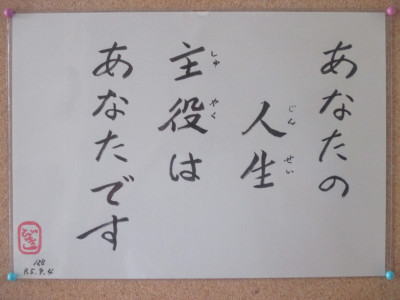 あなたの
人生
じんせい
主役は
しゅやく
あなたです